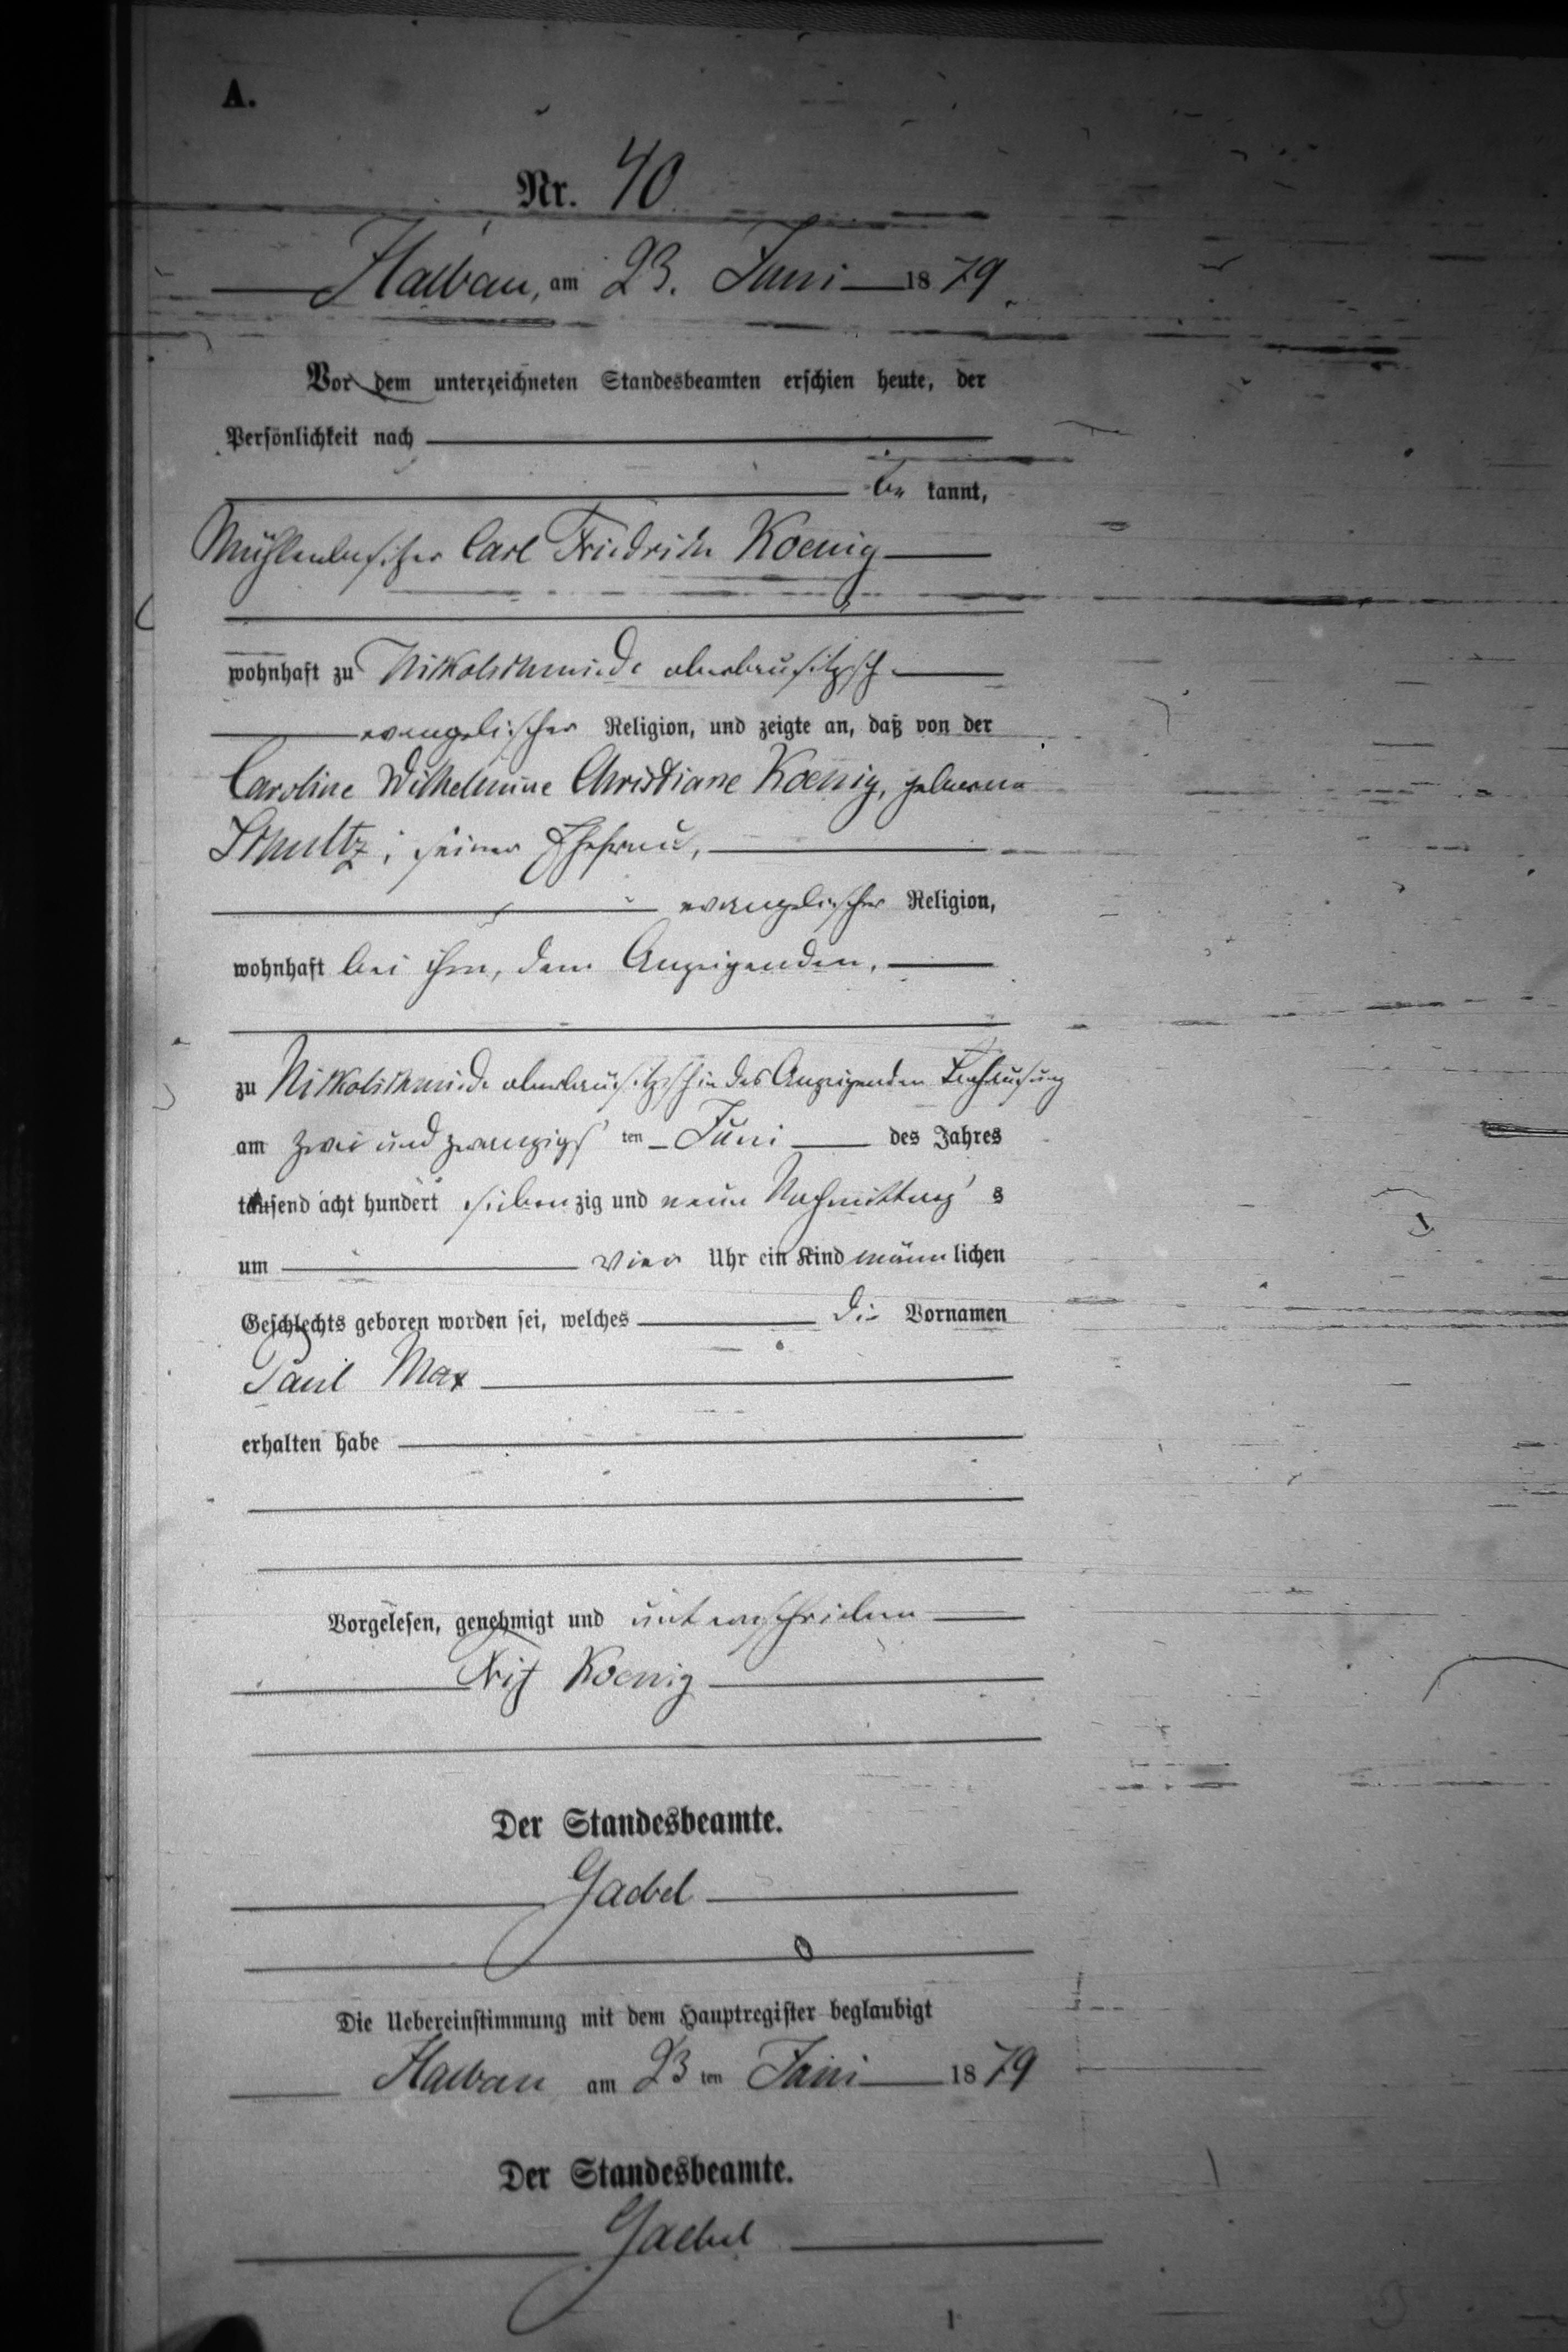 A.
Nr. 40
Halbau, am 23. Juni 1879.
Vor dem unterzeichneten Standesbeamten erschien heute, der
Persönlichkeit nach
be kannt,
Mühlenbesitzer Carl Friedrich Koenig
wohnhaft zu Nikolschmiede oberlausitzisch
evangelischer Religion, und zeigte an, daß von der
Caroline Wilhelmine Christiane Koenig, geborene
Schultz, seiner Ehefrau,
evangelischer Religion,
wohnhaft bei ihm, dem Anzeigenden,
zu Nikolschmiede oberlausitzisch in des Anzeigenden Behausung
am zwei und zwanzigs ten Juni des Jahres
tausend acht hundert siebenzig und neun Nachmittag s
um vier Uhr ein Kind männlichen
Geschlechts geboren worden sei, welches die Vornamen
Paul Max
erhalten habe
Vorgelesen, genehmigt und unterschrieben
Fritz Koenig
Der Standesbeamte.
Gaebel
Die Uebereinstimmung mit dem Hauptregister beglaubigt
Halbau am 23 ten Juni 1879
Der Standesbeamte.
Gaebel